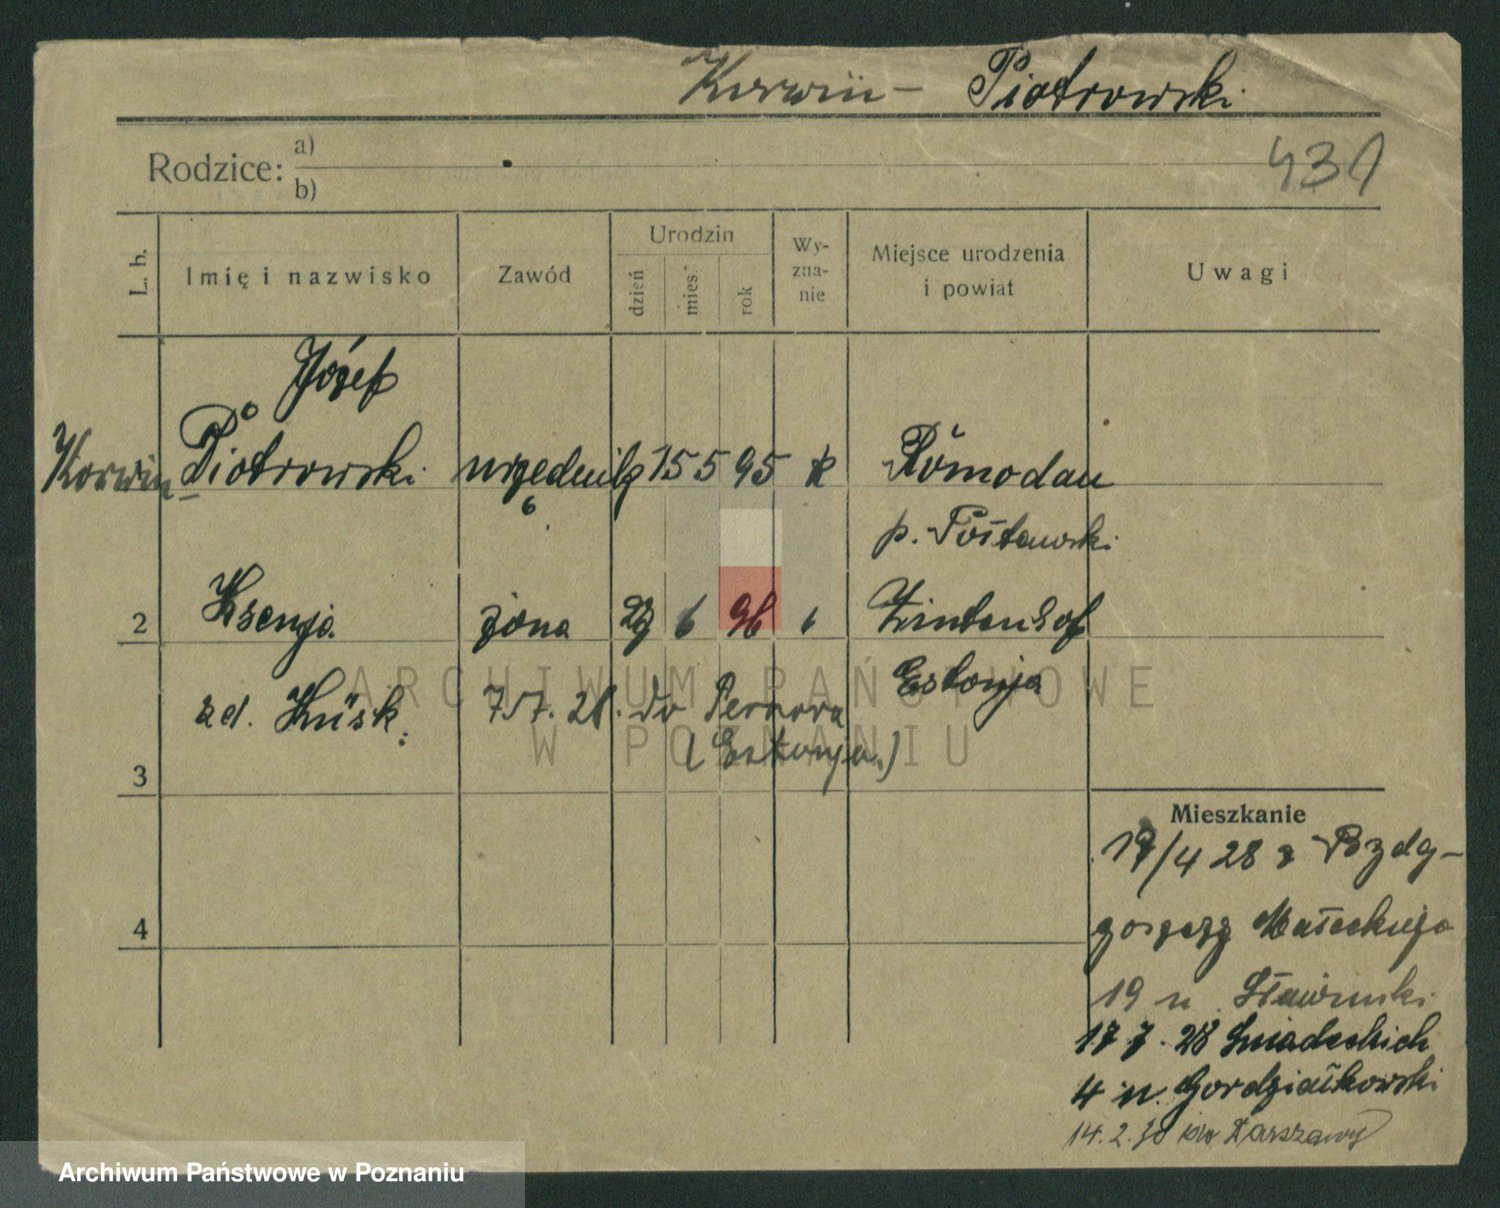 Korwin- Piotrowski
Rodzice: a)
b)
431
L. b.
Imię i nazwisko
Zawód
Urodzin
dzień
mies.
rok
Wy-
zna-
nie
Miejsce urodzenia
i powiat
Uwagi
Józef
Korwin-Piotrowski urzędnik 15 5 95 k
p.
2 Ksenja żona 27 6 96 Zintenhof
Estonja
zd. Küsk.
7.7. 28. do Pernova
(Estonja.)
3
4
Mieszkanie
17/4 28 z Bydg-
goszczy Małeckiego
19 u Sławinski
17.7.28 Śniadeckich
4 u. Gordziałkowski
14.2.30 do Warszawy
ARCHIWUM PAŃSTWOWE
W POZNANIU
Archiwum Państwowe w Poznaniu